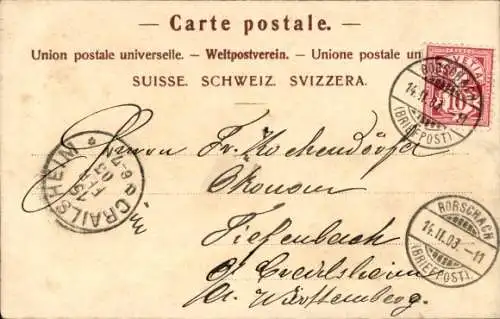 — Carte postale. —
Union postale universelle. — Weltpostverein. — Unione postale un
SUISSE. SCHWEIZ. SVIZZERA.
HELVETIA
10
RORSCHACH
14.II.03.-11
(BRIEFPOST)
CRAILSHEIM
15 FEB 03
Herrn Fr. Kochendörfer
Ökonom
in
Tiefenbach
RORSCHACH
14.II.03.-11
(BRIEFPOST).
b/ Creilsheim
Württemberg.